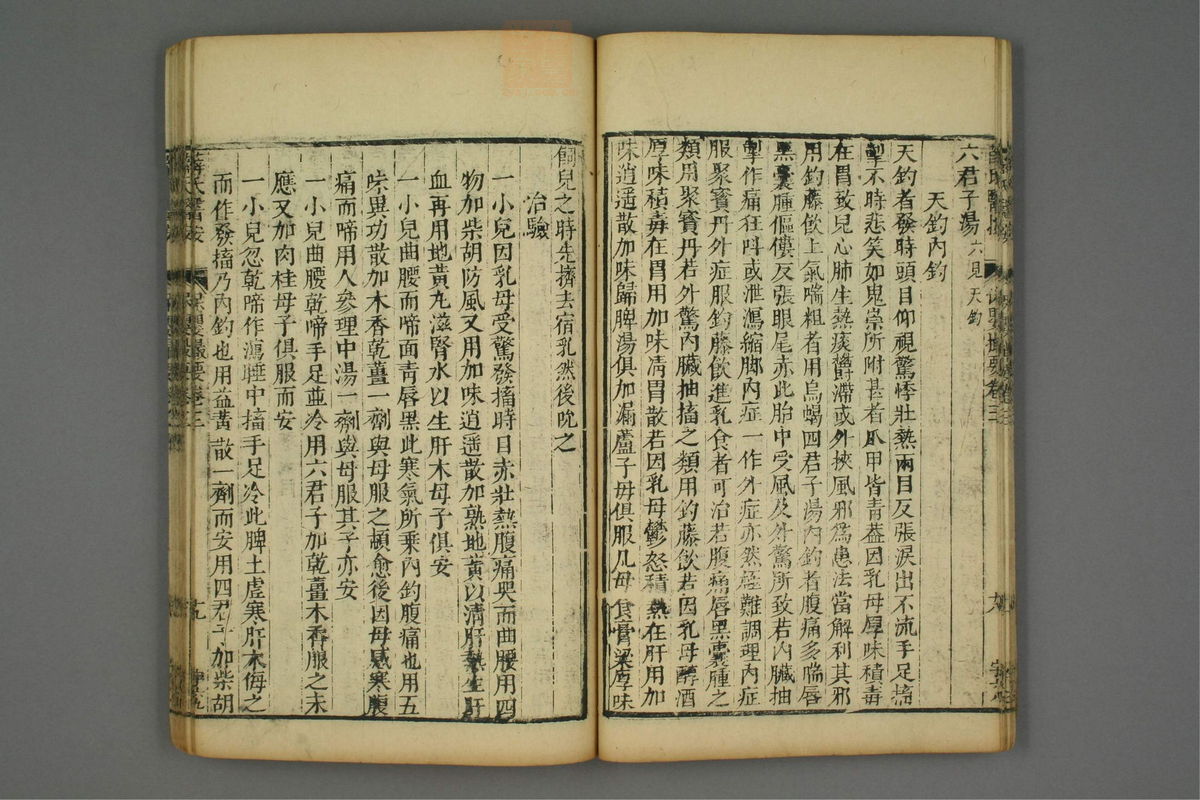 六君子湯六見天釣
天釣內釣
天釣者發時頭目仰視驚悸壯熱兩目反張淚出不流手足搐
掣不時悲笑如鬼祟所附甚者爪甲皆青葢因乳母厚味積毒
在胃致兒心肺生熱痰欝滯或外挾風邪爲患法當解利其邪
用釣藤飲上氣喘粗者用烏蝎四君子湯內釣者腹痛多喘唇
黑囊腫傴僂反張眼尾赤此胎中受風及外驚所致若內臟抽
掣作痛狂呌或泄瀉縮脚內症一作外症亦然極難調理內症
服聚寳丹外症服釣藤飲進乳食者可治若腹痛唇黑囊腫之
類用聚寳丹若外驚內臟抽搐之類用釣藤飲若因乳母醇酒
厚味積毒在胃用加味清胃散若因乳母鬱怒積熱在肝用加
味逍遥散加味歸脾湯俱加漏蘆子母俱服凡母食膏粱厚味
飼兒之時先擠去宿乳然後吮之
治驗
一小兒因乳母受驚發搐時目赤壯熱腹痛哭而曲腰用四
物加柴胡防風又用加味逍遥散加熟地黄以清肝熱生肝
血再用地黄丸滋腎水以生肝木母子俱安
一小兒曲腰而啼面青唇黑此寒氣所乗內釣腹痛也用五
味異功散加木香乾薑一劑與母服之頓愈後因母感寒腹
痛而啼用人參理中湯一劑與母服其子亦安
一小兒曲腰乾啼手足並冷用六君子加乾薑木香服之未
應又加肉桂母子俱服而安
一小兒忽乾啼作瀉睡中搐手足冷此脾土虛寒肝木侮之
而作發搐乃內釣也用益黃散一劑而安用四君子加柴胡